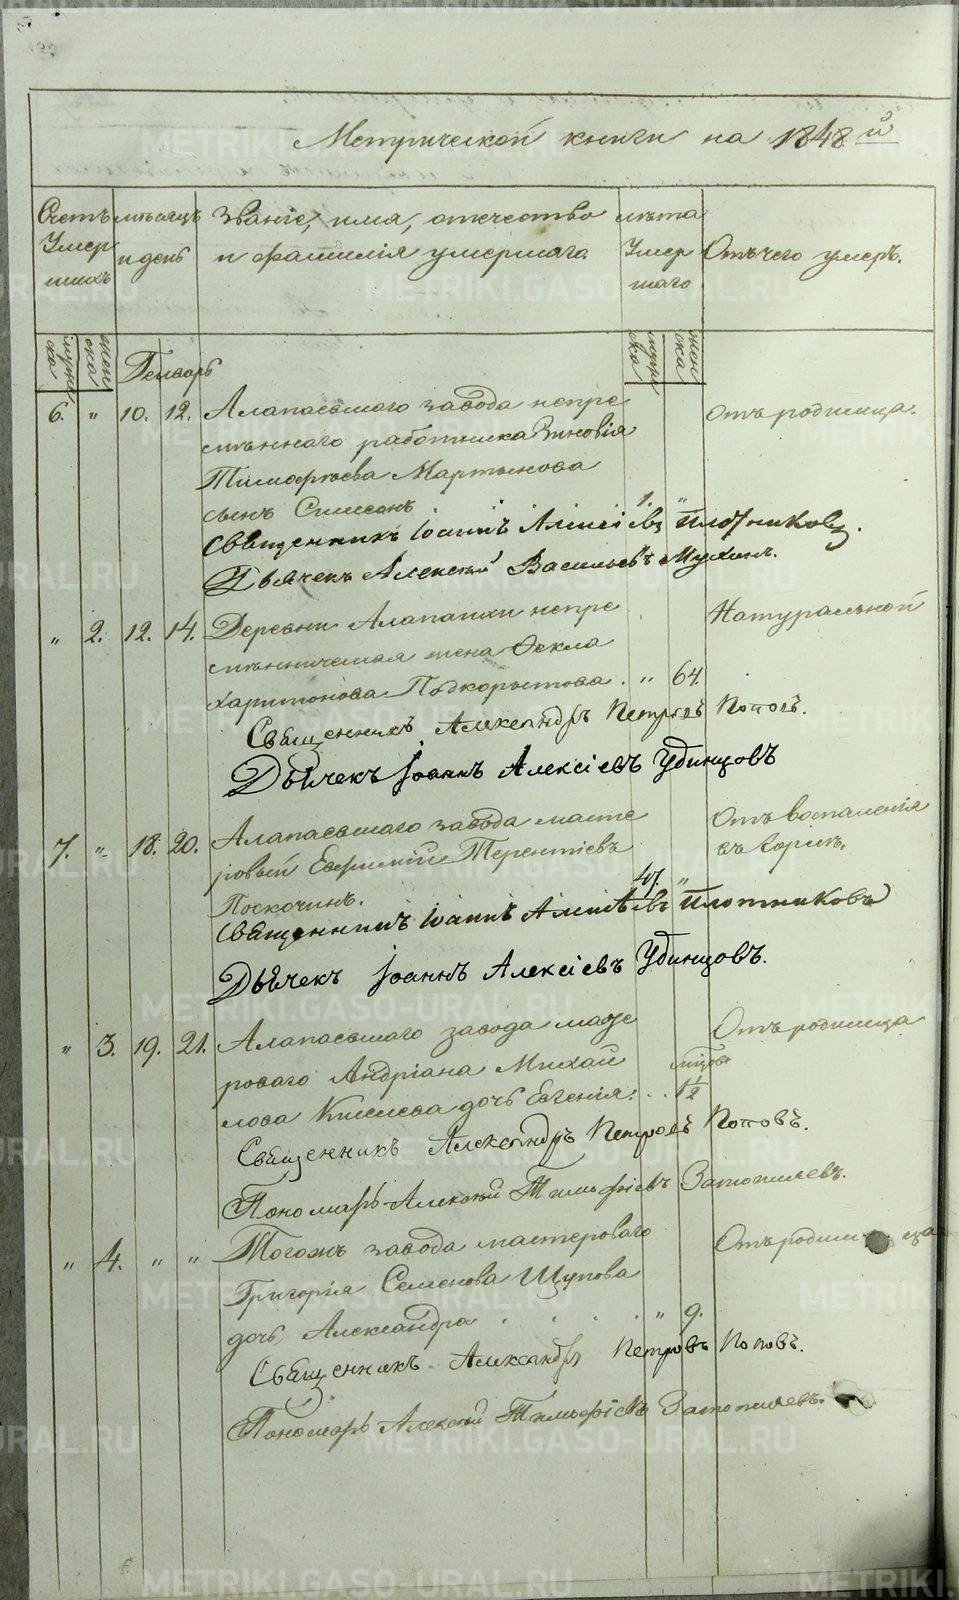 Метрической книги на 1848й
Счетъ умершихъ
мѣсяцъ и день
Званіе, имя, отечество и фамилія умершаго.
лѣта умершаго
Отъ чего умеръ.
муже ска
жен ска
муже ска
жен ска
Генварь
6. " 10. 12. Алапаевскаго завода непре Отъ родимца.
мѣннаго работника Зиновія
Тимофѣева Мартынова
сынъ Симеонъ 1. "
Священникъ Іоаннъ Алексіевъ Плотниковъ.
Дьячекъ Алексѣй Васильевъ Мухинъ.
" 2. 12. 14. Деревни Алапаихи непре Натуральной
мѣнническая жена Фекла
Харитонова Подкорытова. " 64.
Священникъ Александръ Петровъ Поповъ.
Дьячекъ Іоаннъ Алексіевъ Удинцовъ
7. " 18. 20. Алапаевскаго завода масте Отъ воспаленія
ровый Евфимій Терентіевъ въ горлѣ.
Поскочинъ. 47. "
Священникъ Іоаннъ Алексѣевъ Плотниковъ
Дьячекъ Іоаннъ Алексіевъ Удинцовъ.
" 3. 19. 21. Алапаевскаго завода масте Отъ родимца
роваго Андріана Михай мѣсяц
лова Киселева дочь Евгенія. . . 1/2
Священникъ Александръ Петровъ Поповъ.
Пономарь Алексѣй Тимофіевъ Затопляевъ.
" 4. " " Тогожъ завода мастероваго Отъ родимца
Григорія Семенова Щупова
дочь Александра . . . . " 9.
Священникъ Александръ Петровъ Поповъ.
Пономарь Алексѣй Тимофіевъ Затопляевъ.
METRIKI.GASO-URAL.RU